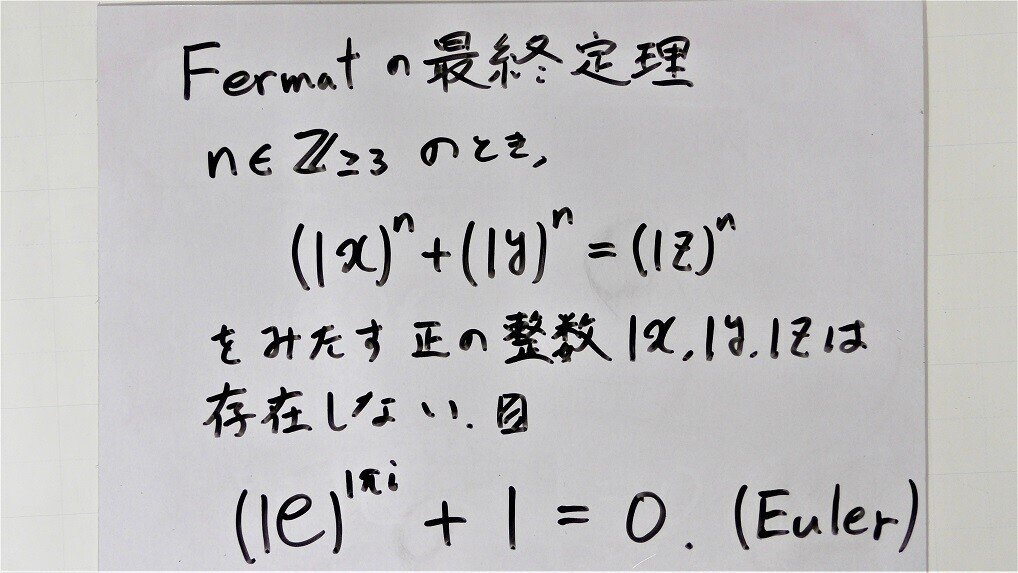 Fermatの最終定理
n∈ℤ≥3 のとき,
(1x)ⁿ+(1y)ⁿ=(1z)ⁿ
をみたす正の整数1x,1y,1zは
存在しない.目
(1e)^{1πi} + 1 = 0. (Euler)